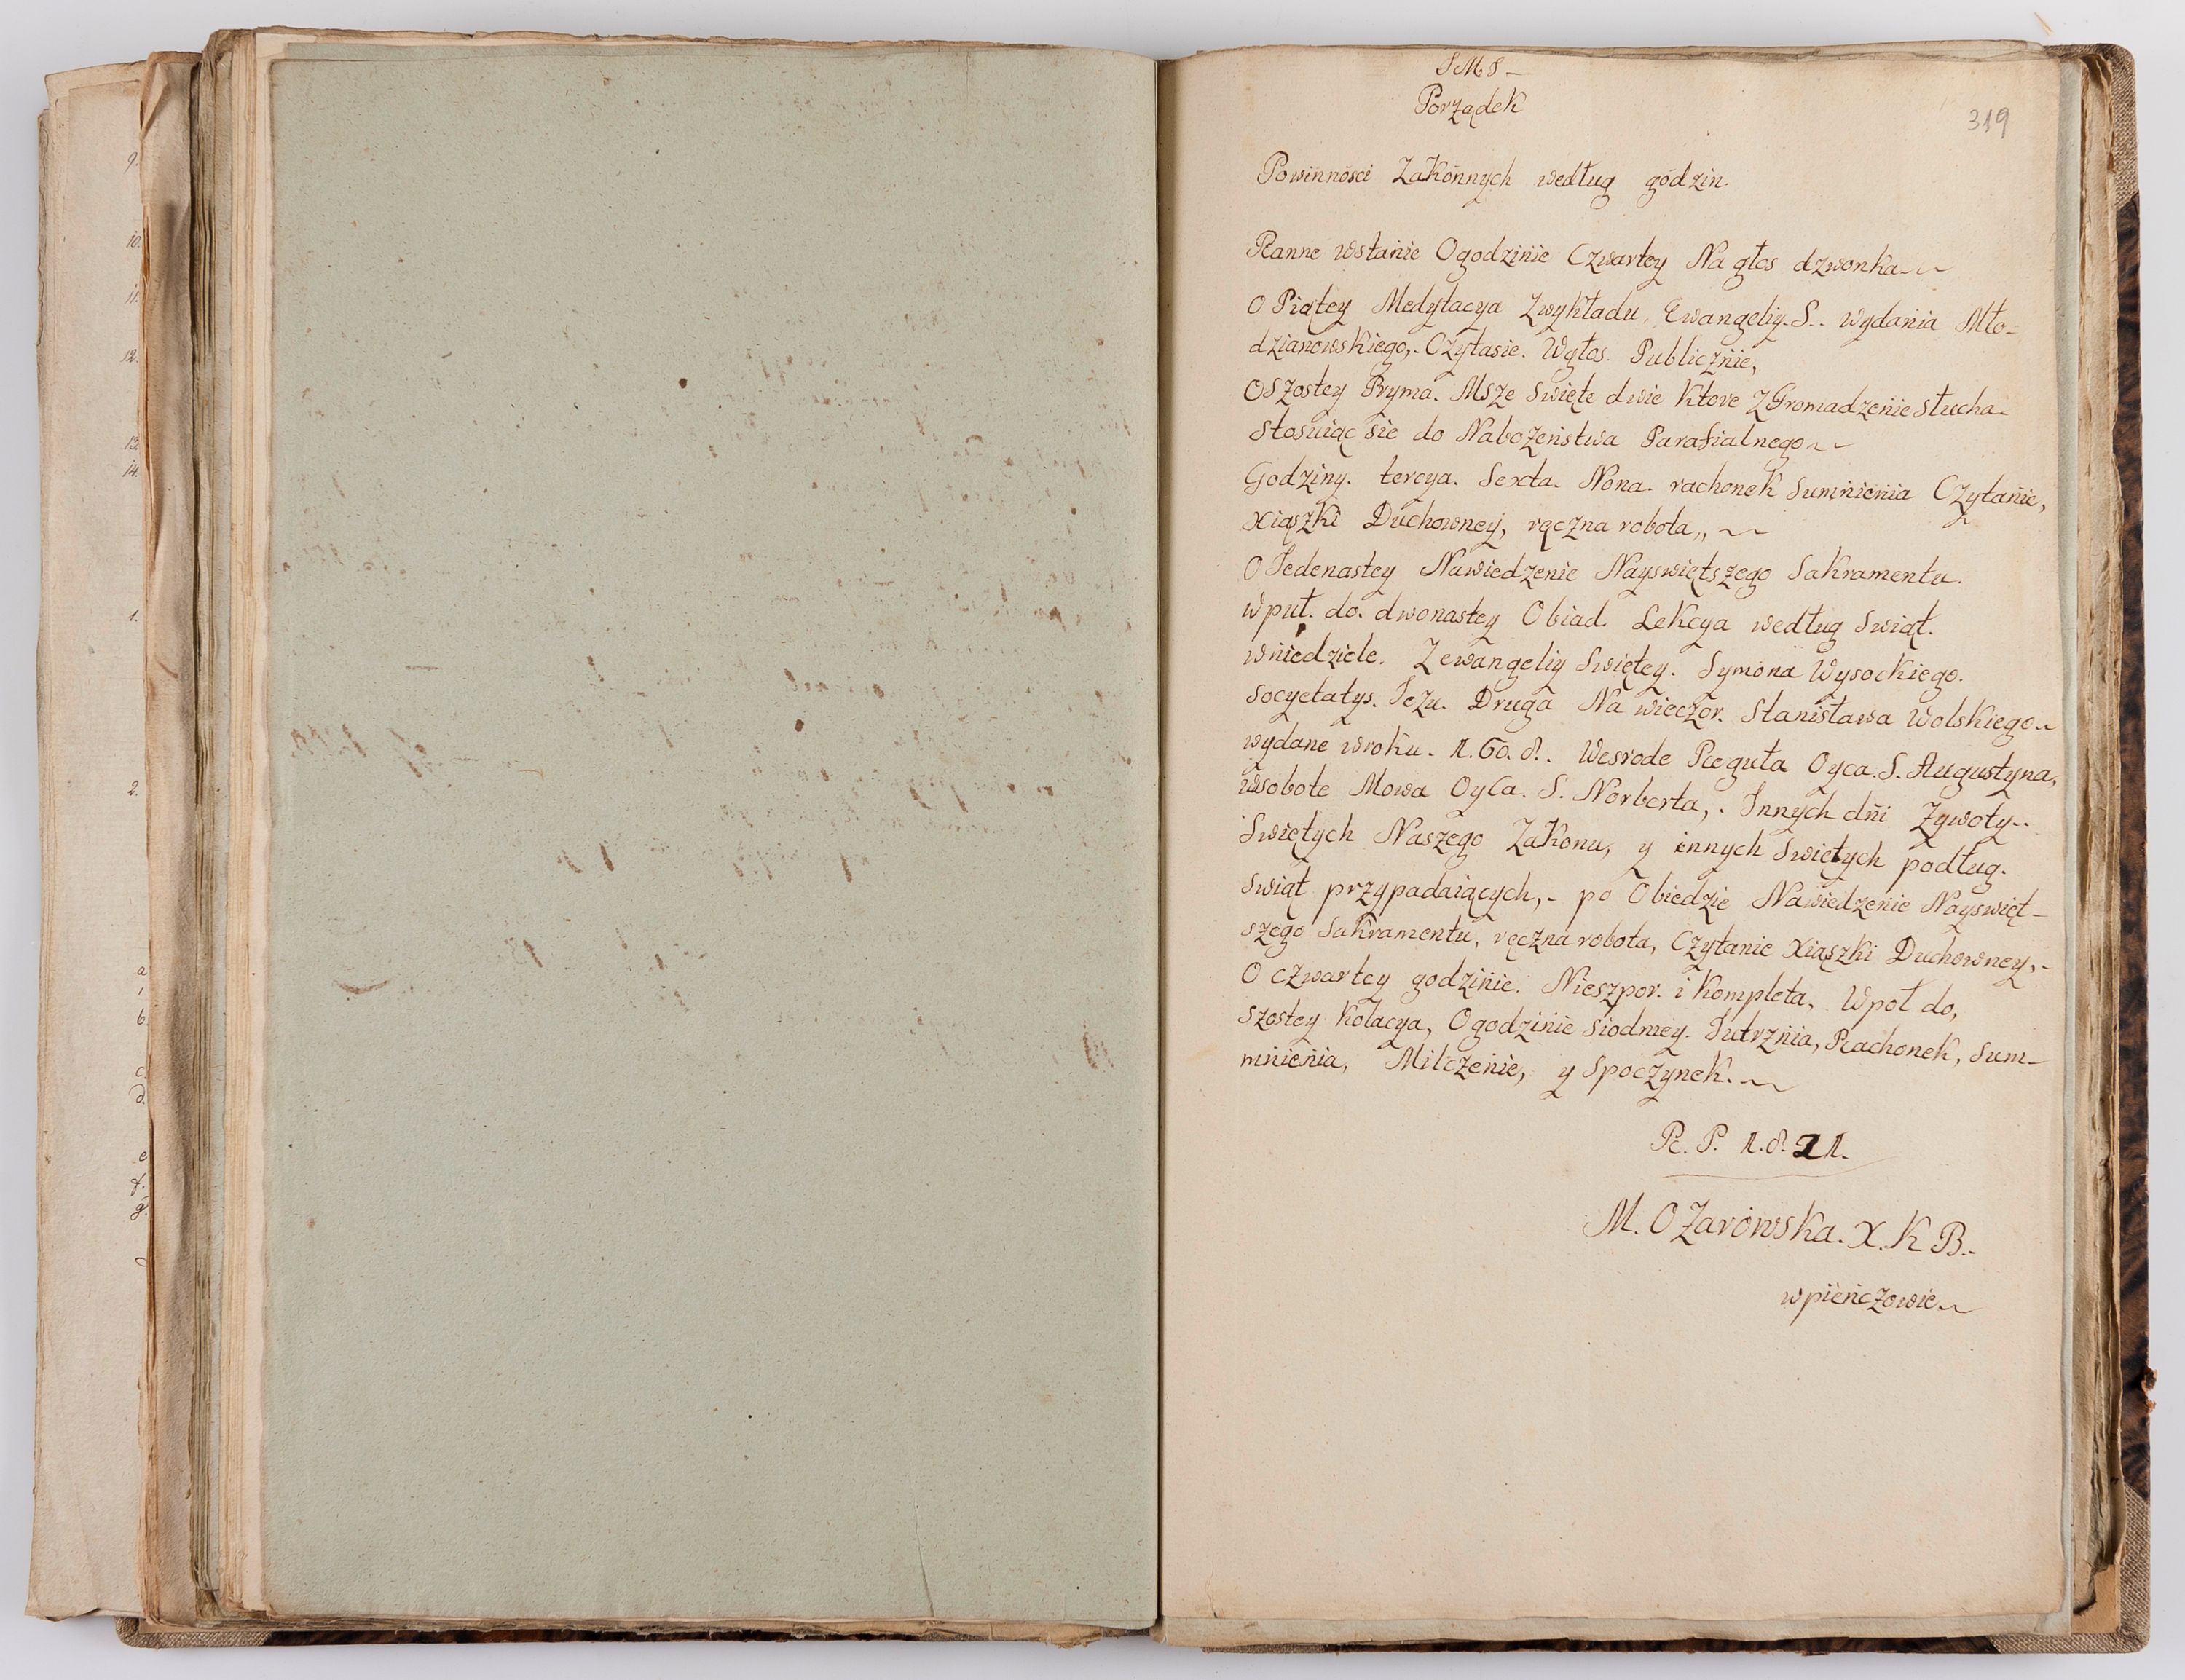 9.
10.
11.
12.
13.
14.
1.
2.
a
b.
c.
d.
e
f.
g.
J M J –
Porządek
319
Powinności Zakonnych według godzin.
Ranne wstanie O godzinie Czwartey Na głos dzwonka
O Piątey Medytacya Zwykładu Ewangeliy. S.. wydania Mło-
dzianowskiego,. Czytasie. Wgłos. Publicznie,
O Szostey Pryma. Msze Swięte dwie Ktore ZGromadzenie słucha-
Stosuiąc sie do Nabożeństwa Parafialnego
Godziny. tercya. Sexta. Nona. rachonek Sumnienia Czytanie,
Xiąszki Duchowney, ręczna robota,,
O Jedenastey Nawiedzenie Nayswiętszego Sakramentu.
w puł. do. dwonastey Obiad. Lekcya według Swiąt.
w niedziele. Z ewangeliy Swiętey. Symona Wysockiego.
Socyetatys. Jezu. Druga Na wieczor. Stanisława Wolskiego
wydane wroku. 1. 60. 8.. Wesrode Reguła Oyca. S. Augustyna,
wsobote Mowa Oyca. S. Norberta,. Innych dni Zywoty..
Swiętych Naszego Zakonu, y innych Swiętych podług.
Swiąt przypadaiących,- po Obiedzie Nawiedzenie Nayswięt-
szego Sakramentu, ręczna robota, Czytanie Xiąszki Duchowney,-
O czwartey godzinie. Nieszpor. i Kompleta, Wpoł do,
szostey Kolacya, O godzinie siodmey. Jutrznia, Rachonek, Sum-
mnienia, Milczenie, y Spoczynek.
R. P. 1.8.21.
M. OZarowska. X. K B.-
wpienczowie